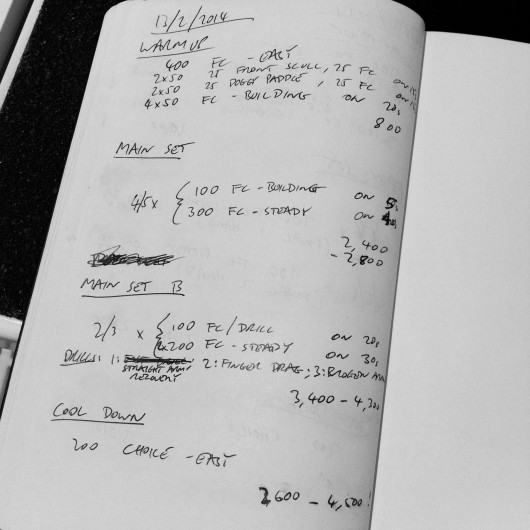 12/2/2014
WARMUP
400 FC - EASY
2x50 25 FRONT SCULL, 25 FC ON 15s
2x50 25 DOGGY PADDLE, 25 FC ON 15s
4x50 FC - BUILDING ON 20s
800
MAIN SET
4/5x { 100 FC - BUILDING ON 5s
300 FC - STEADY ON
2,400
- 2,800
MAIN SET B
2/3 x { 100 FC/DRILL ON 20s
2x200 FC - STEADY ON 30s
DRILLS: 1: STRAIGHT ARM RECOVERY 2: FINGER DRAG; 3: BROKEN ARM
3,400 - 4,300
COOL DOWN
200 CHOICE - EASY
3600 - 4,500!